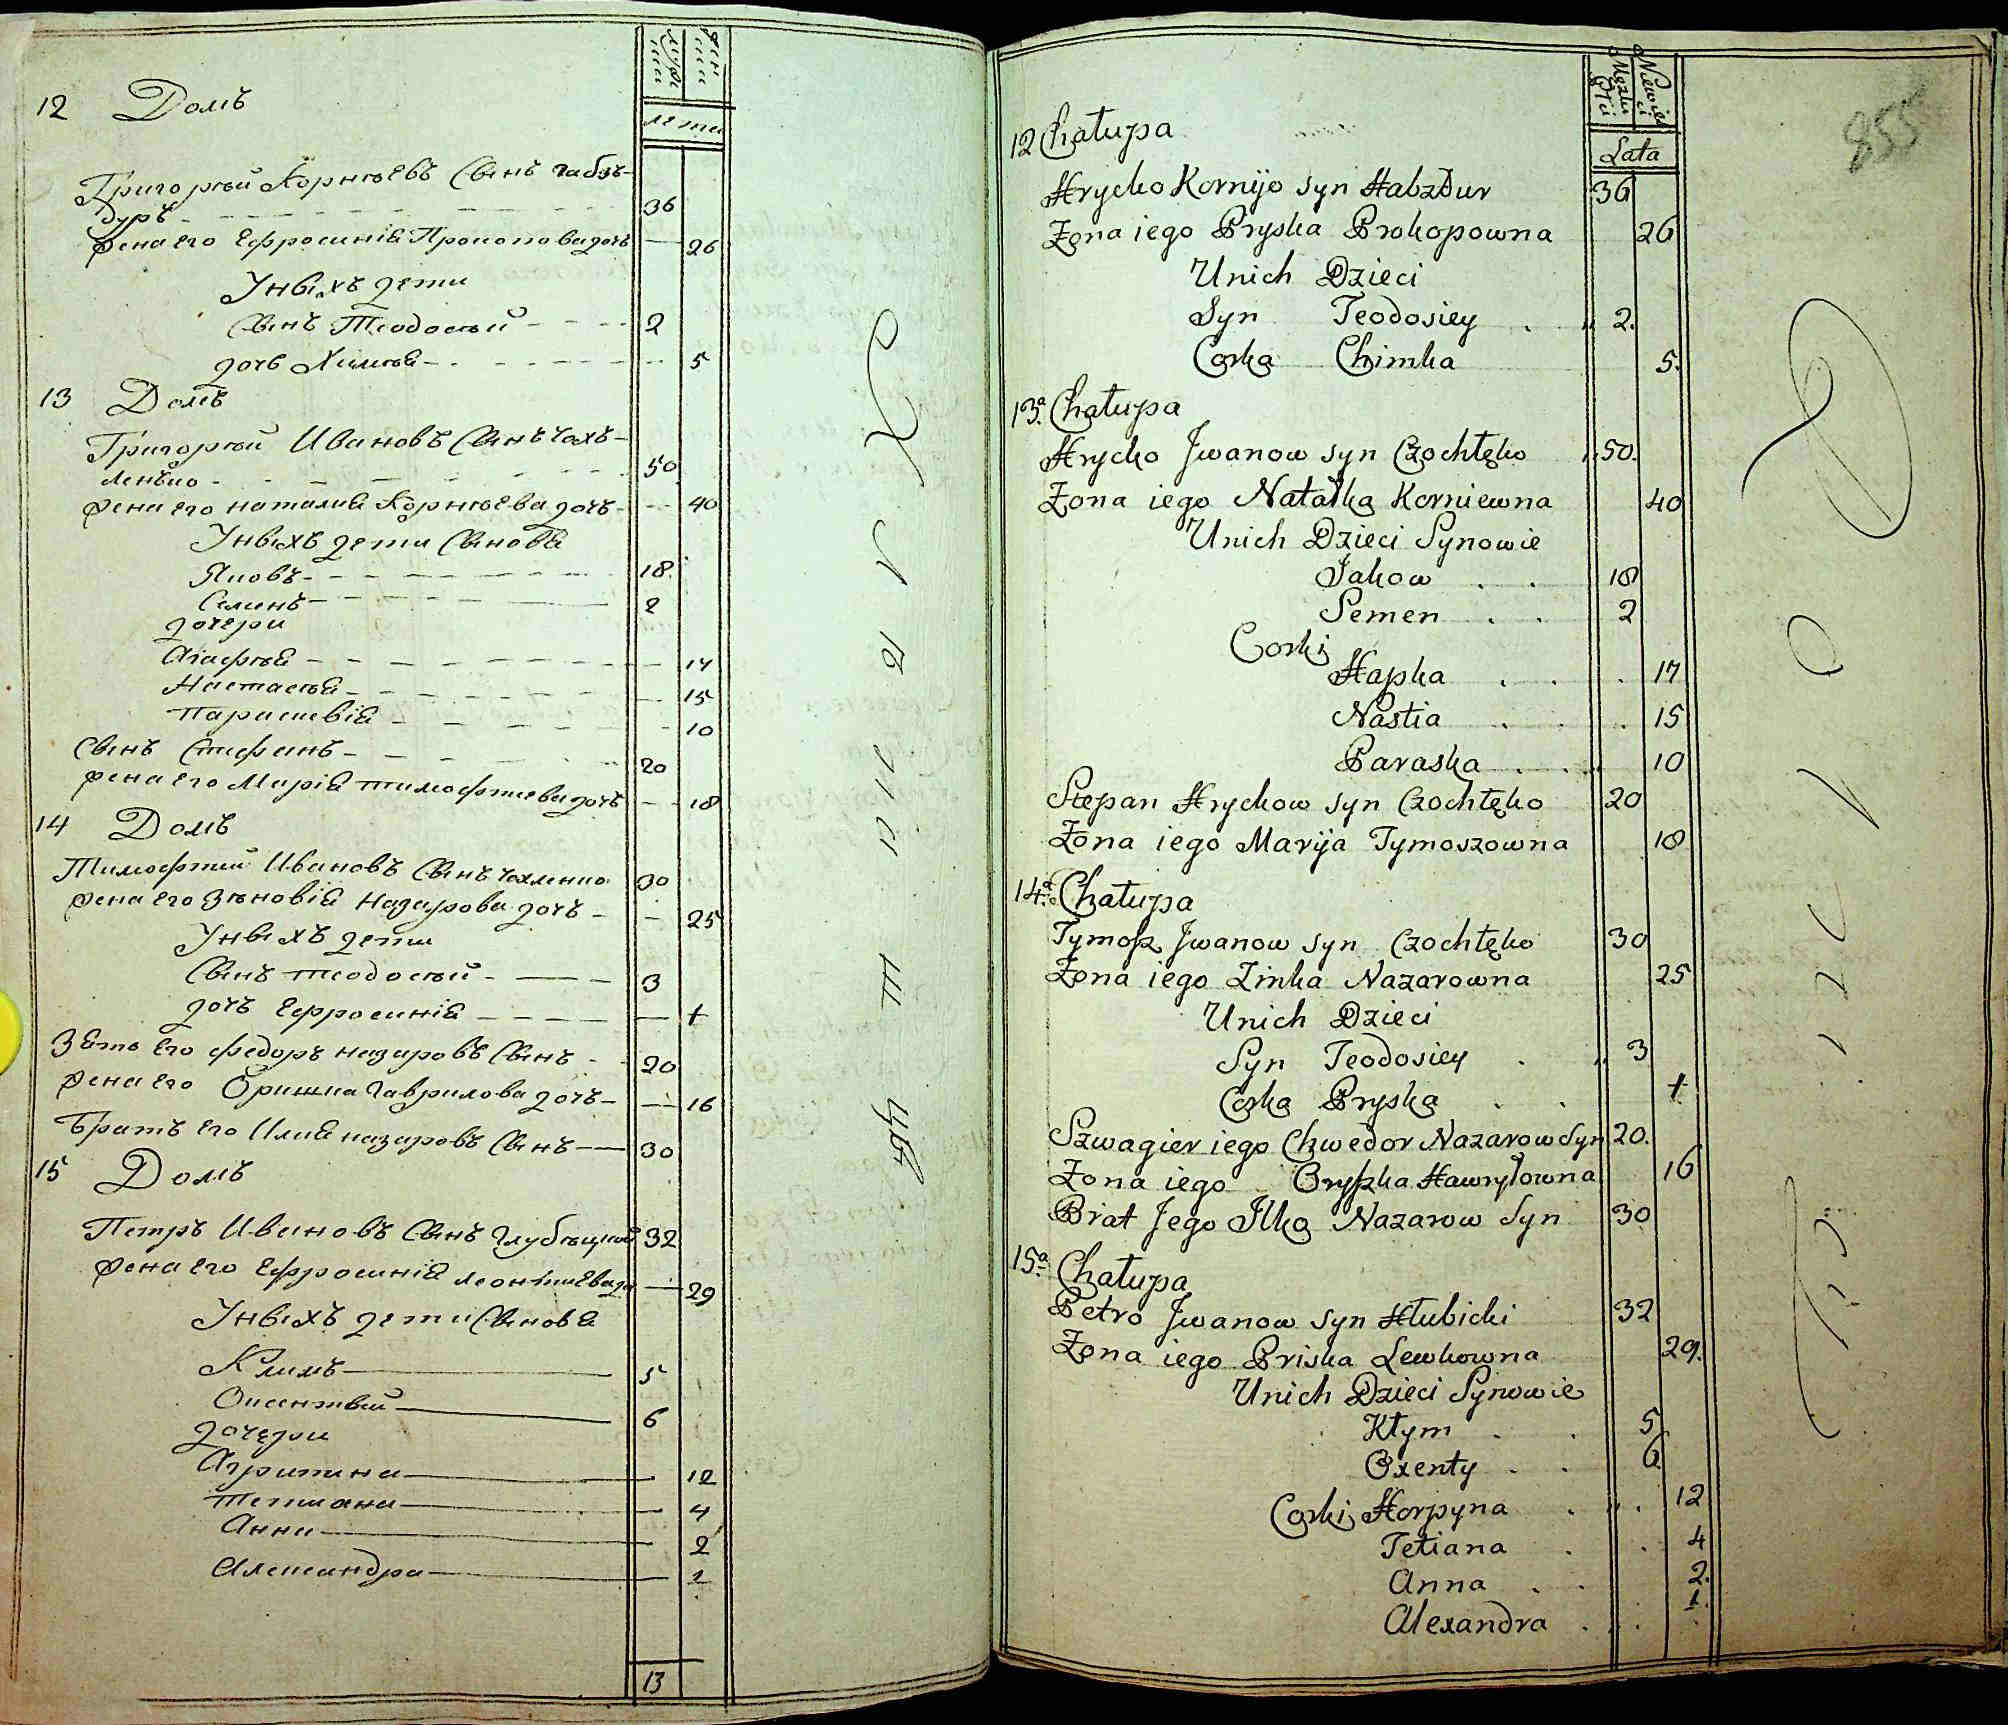 12 Домъ
лета
Григорѣй Корнѣевъ Сынъ Габзъ-
дуръ 36
жена его Ефросинія Прокопова дочь 26
Унихъ дети
Сынъ Теодосѣй 2
дочь Химка 5
13 Домъ
Григорѣй Ивановъ Сынъ Чохъ-
ленко 50
жена его Наталия Корнѣева дочь 40
Унихъ дети Сынова
Яковъ 18
Семенъ 2
дочери
Агафия 17
Настасия 15
Параскевія 10
Сынъ Стефанъ 20
жена его Марія Тимофтиева дочь 18
14 Домъ
Тимофтий Ивановъ Сынъ Чохленко 30
жена его Зѣновія Назарова дочь 25
Унихъ дети
Сынъ Теодосѣй 3
дочь Ефросинія +
Зять его Федоръ Назаровъ Сынъ 20
жена его Оришка Гаврилова дочь 16
Братъ его Илия Назаровъ Сынъ 30
15 Домъ
Петръ Ивановъ Сынъ Глубѣцкий 32
жена его Ефросинія Леонтиева до 29
Унихъ дети Сынова
Климъ 5
Оксентѣй 6
дочери
Агрипина 12
Тетиана 4
Анна 2
Александра 1
13
855
Męzki
Płci
Niewie
Lata
12 Chałupa
Hrycko Kornijo syn Habzdur 36
Żona iego Pryska Prokopowna 26
Unich Dzieci
Syn Teodosiey 2.
Corka Chimka 5.
13.ª Chałupa
Hrycko Jwanow syn Czochłęko 50.
Żona iego Natałka Korniewna 40
Unich Dzieci Synowie
Jakow 18
Semen 2
Corki
Hapka 17
Nastia 15
Paraska 10
Stepan Hryckow syn Czochłęko 20
Żona iego Maryja Tymoszowna 18
14.ª Chałupa
Tymosz Jwanow syn Czochłęko 30
Żona iego Zinka Nazarowna 25
Unich Dzieci
Syn Teodosiey 3
Corka Pryska +
Szwagier iego Chwedor Nazarow Syn 20.
Żona iego Oryszka Hawryłowna 16
Brat Jego Jlko Nazarow Syn 30
15ª Chałupa
Petro Jwanow syn Hłubicki 32
Żona iego Priska Lewkowna 29.
Unich Dzieci Synowie
Kłym 5
Oxenty 6
Corki Horpyna 12
Tetiana 4
Anna 2.
Alexandra 1.